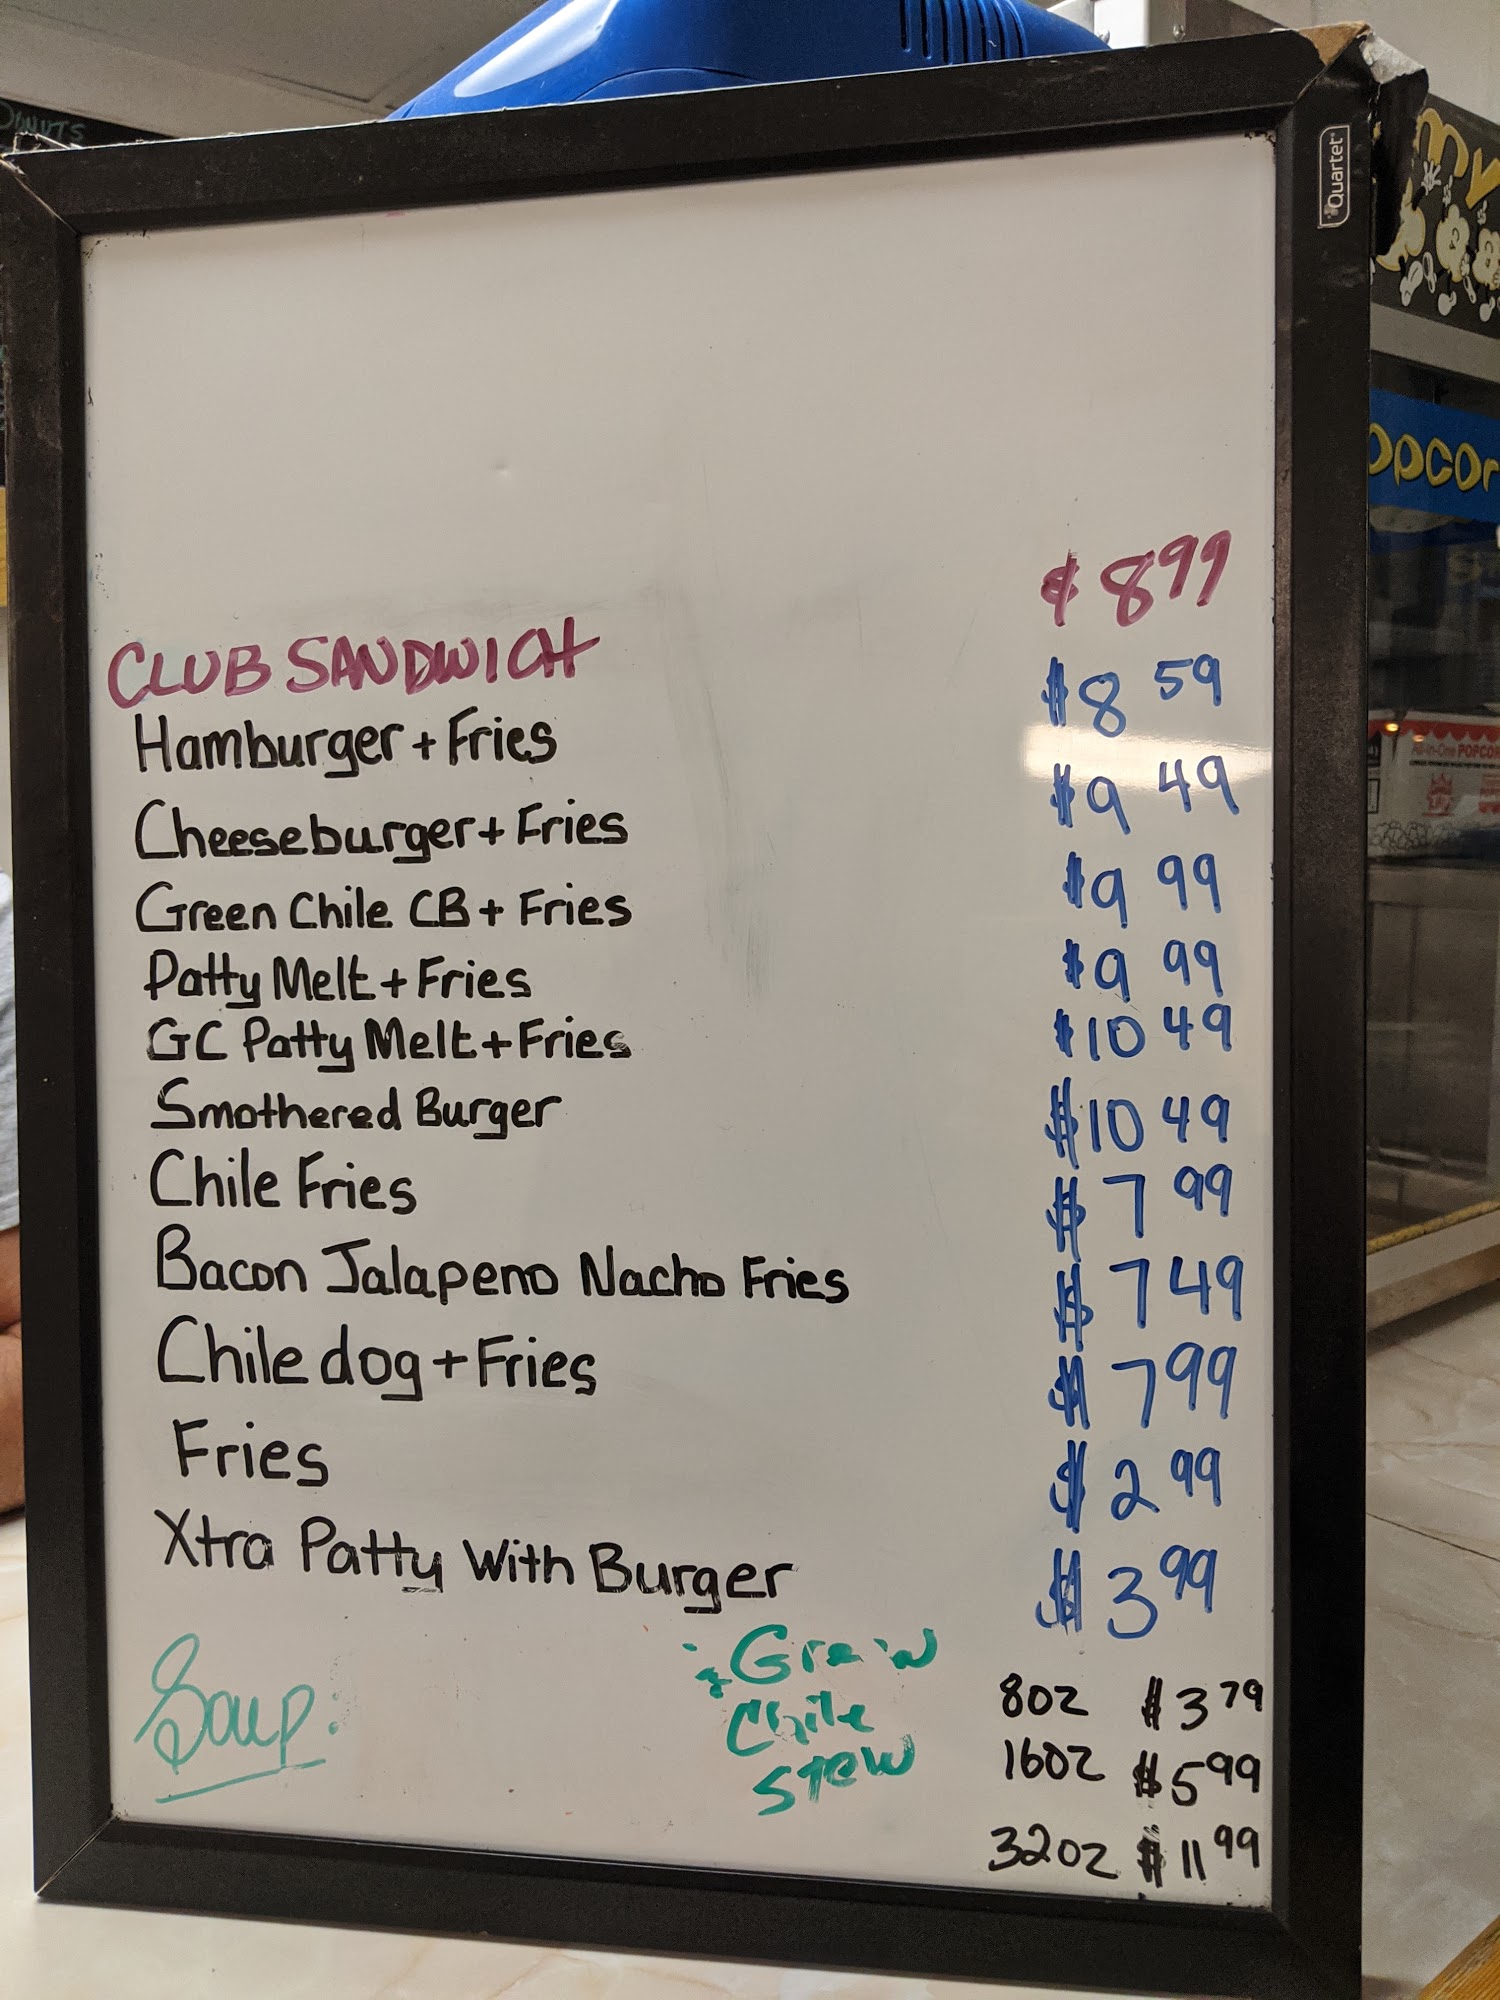 DONUTS
Quartet
my
opcor
All-in-One POPCOR
CLUB SANDWICH $8 99
Hamburger + Fries $8 59
Cheeseburger + Fries $9 49
Green Chile CB + Fries $9 99
Patty Melt + Fries $9 99
GC Patty Melt + Fries $10 49
Smothered Burger $10 49
Chile Fries $7 99
Bacon Jalapeno Nacho Fries $7 49
Chile dog + Fries $7 99
Fries $2 99
Xtra Patty With Burger $3 99
Soup:
Chile
Stew
8oz $3 79
16oz $5 99
32oz $11 99